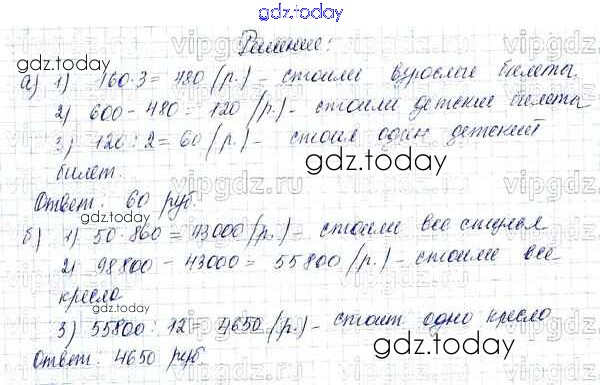 gdz.today
Решение:
а) 1) 160·3 = 480 (р.) – стоили взрослые билеты.
2) 600 – 480 = 120 (р.) – стоили детские билеты
3) 120 : 2 = 60 (р.) – стоил один детский
билет.
gdz.today
Ответ: 60 руб
gdz.today
б) 1) 50·860 = 43000 (р.) – стоили все стулья
2) 98800 – 43000 = 55800 (р.) – стоили все
кресла
gdz.today
3) 55800 : 12 4650 (р.) – стоит одно кресло
Ответ: 4650 руб
gdz.today
vipgdz.ru